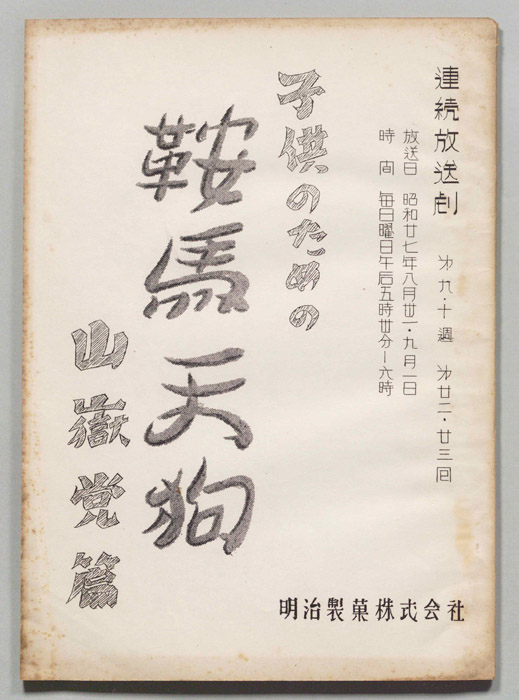 連続放送劇 㐧九・十週 㐧廿二・廿三回
放送日 昭和廿七年八月卅一・九月七日
時間 毎日曜日午后五時卅分ー六時
子供のための
鞍馬天狗
山嶽党篇
明治製菓株式会社